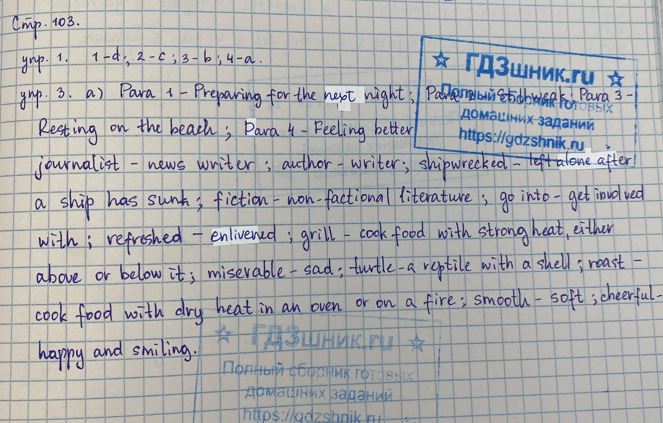 Стр. 103.
упр. 1. 1-d, 2-c; 3-b; 4-a.
упр. 3. a) Para 1 - Preparing for the next night; Para Para 3 -
Resting on the beach; Para 4 - Feeling better
journalist - news writer; author - writer; shipwrecked - left alone after
a ship has sunk; fiction - non-factional literature; go into - get involved
with; refreshed - enlivened; grill - cook food with strong heat, either
above or below it; miserable - sad; turtle - a reptile with a shell; roast -
cook food with dry heat in an oven or on a fire; smooth - soft; cheerful -
happy and smiling.
ГДЗшник.ru
Полный сборник готовых
домашних заданий
https://gdzshnik.ru
ГДЗшник.ru
Полный сборник готовых
домашних заданий
https://gdzshnik.ru